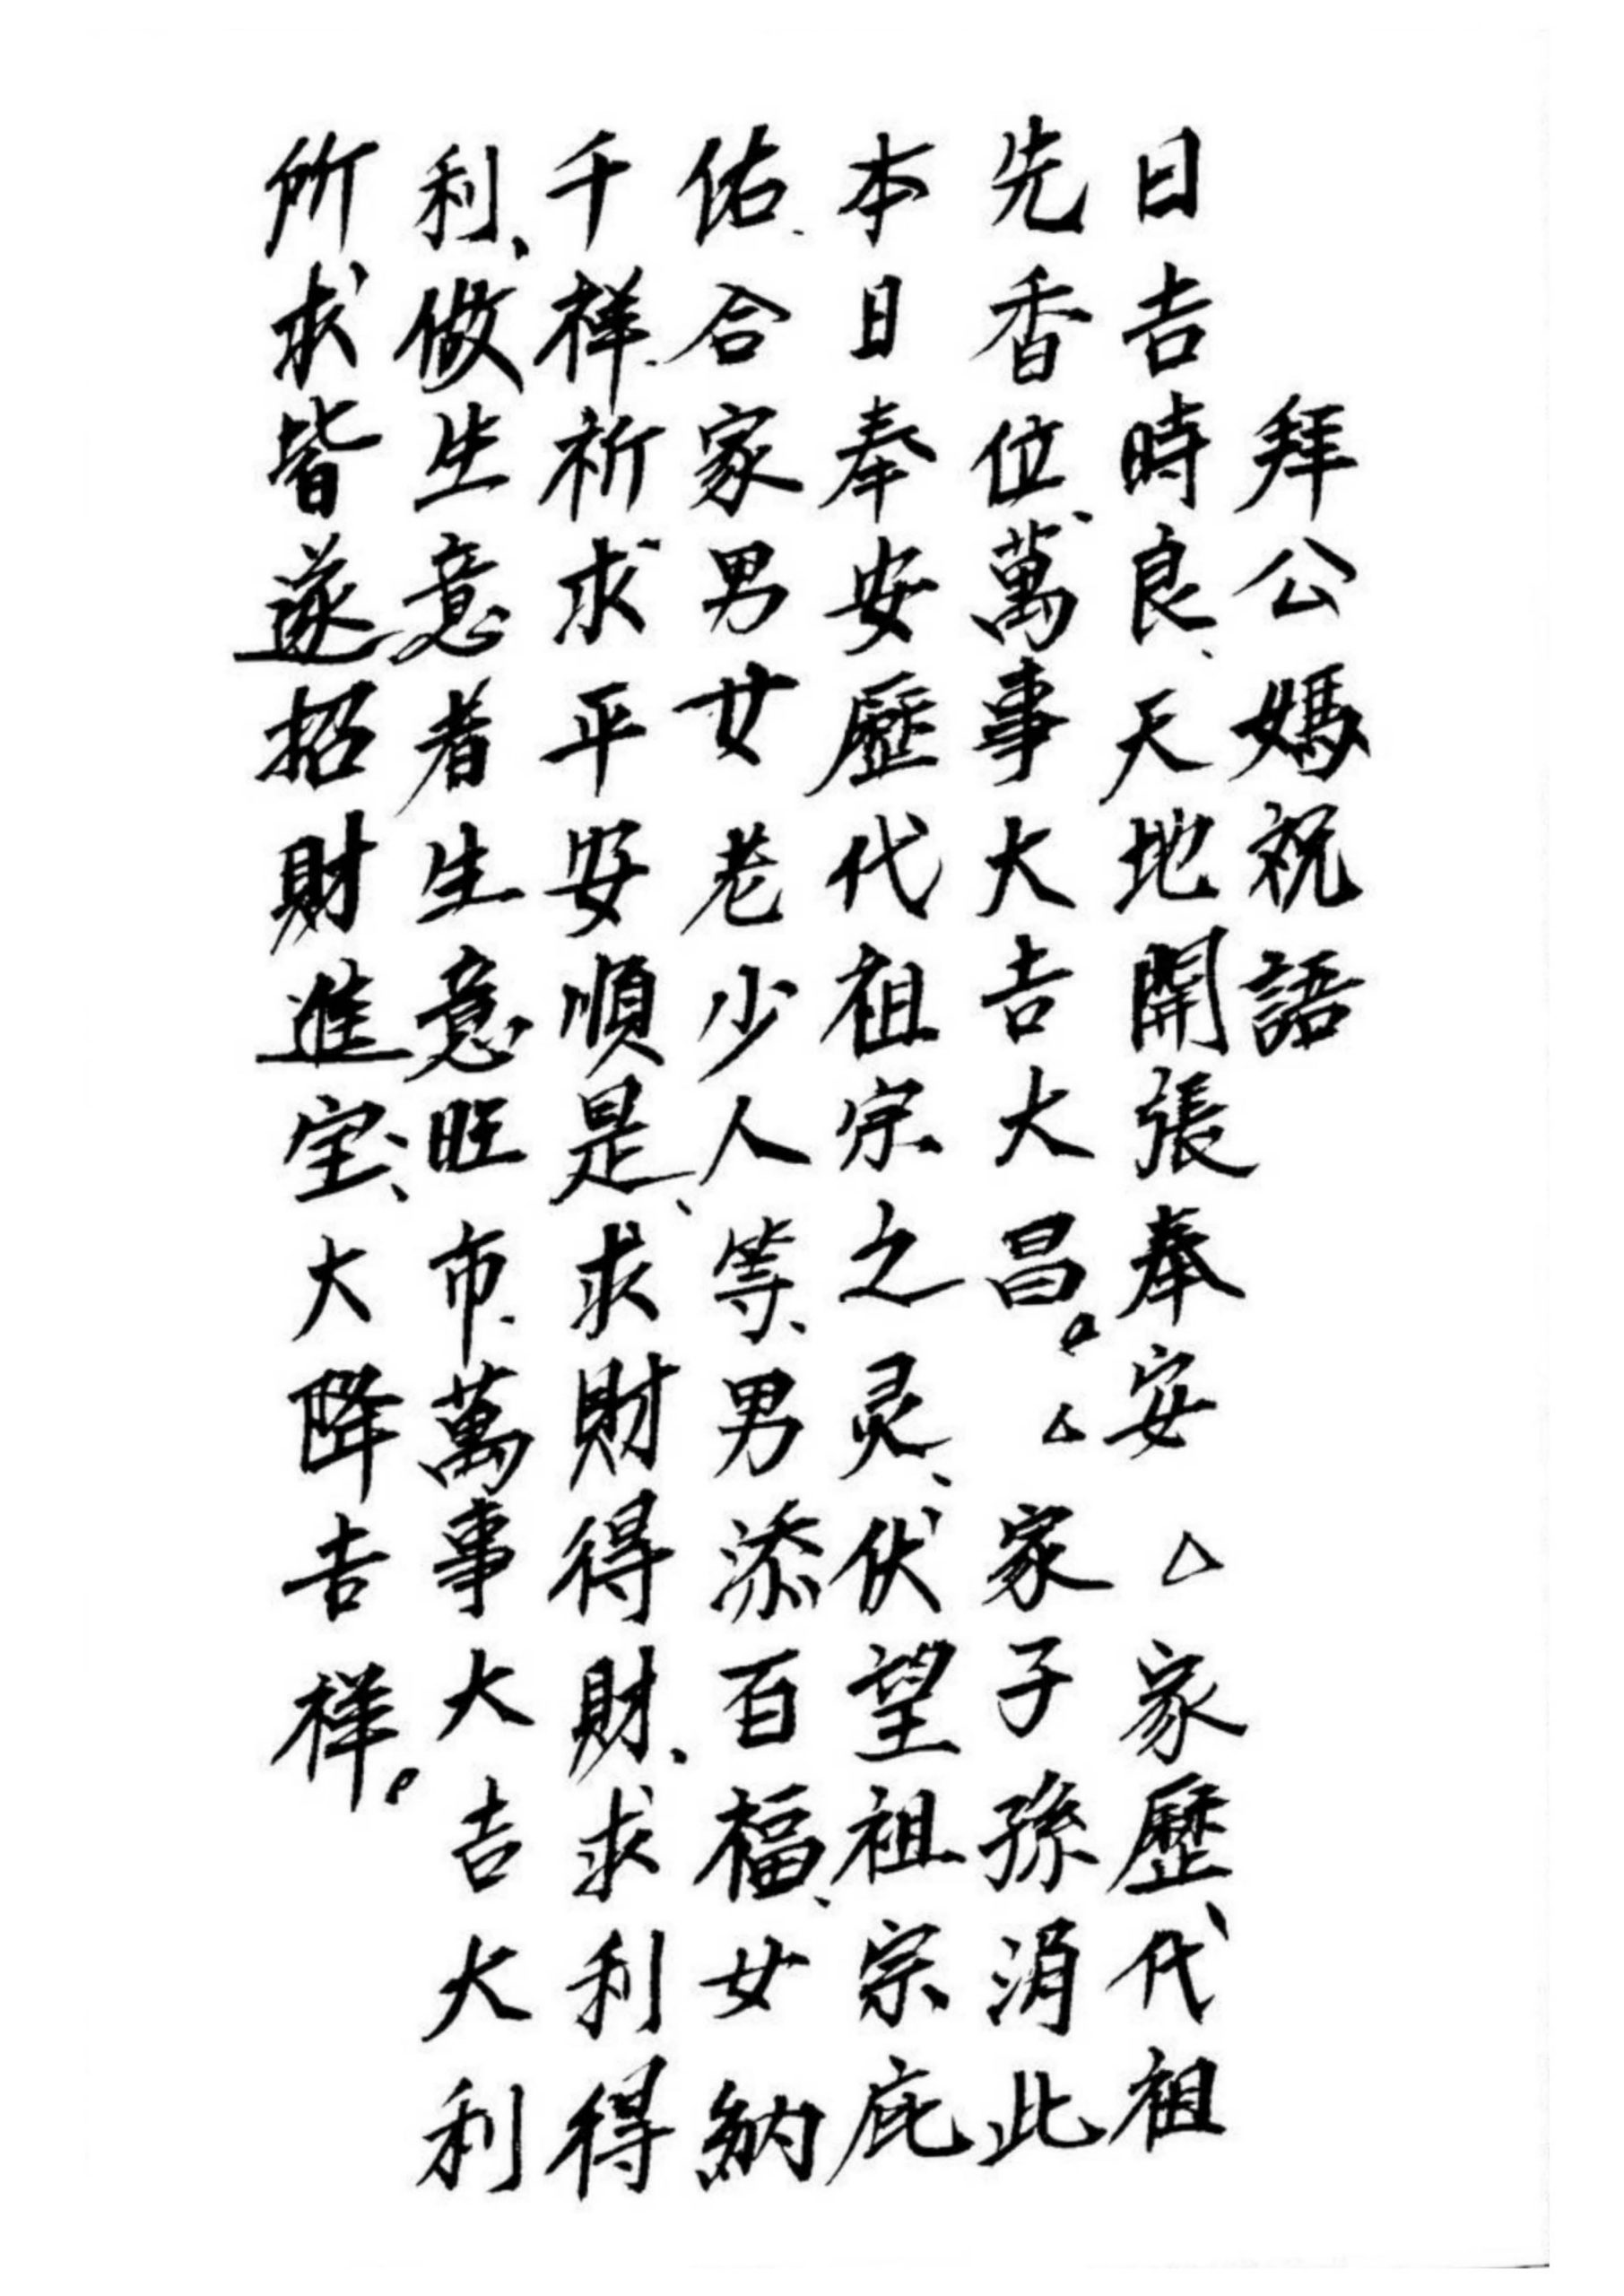 拜公媽祝語
日吉時良、天地開張奉安 △家歷代祖
先香位、萬事大吉大昌。△家子孫涓此
本日奉安歷代祖宗之灵、伏望祖宗庇
佑、合家男女老少人等、男添百福、女納
千祥、祈求平安順是、求財得財、求利得
利、做生意者生意旺市、萬事大吉大利
所求皆遂招財進宝、大降吉祥。